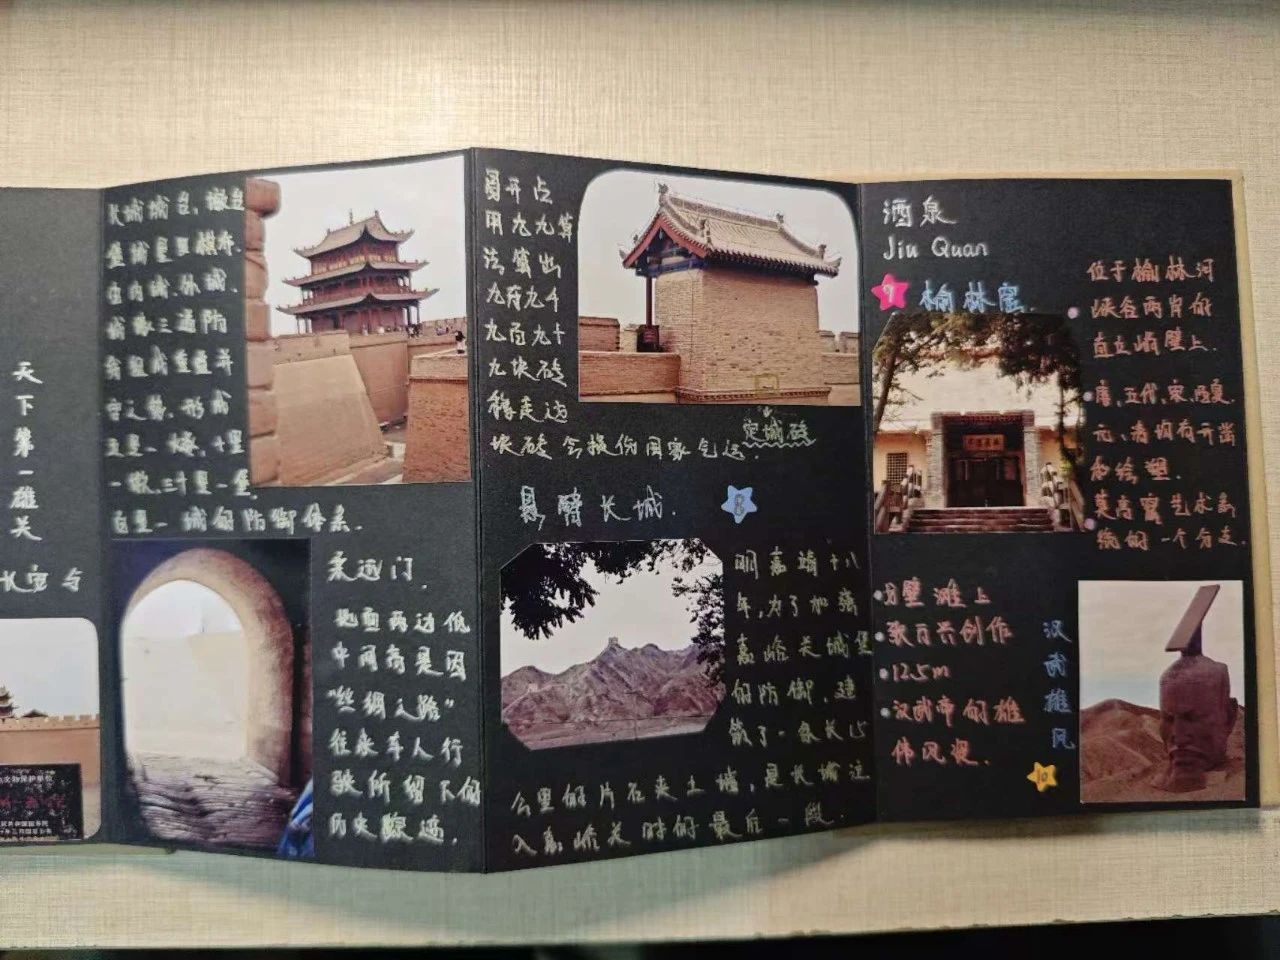 天
下
第
一
雄
关
长城城台、墩台
堡城星罗棋布.
由内城、外城、
城壕三道防
线组成重叠并
守之势.形成
五里一燧、十里
一墩、三十里一堡.
百里一城的防御体系.
柔远门.
地面两边低
中间高是因
"丝绸之路"
往来车人行
驶所留下的
历史踪迹.
易开占
用九九算
法算出
九万九千
九百九十
九块砖
移走这
块砖会损伤国家气运.
定城砖
悬臂长城.
8
明嘉靖十八
年,为了加强
嘉峪关城堡
的防御.建
筑了一条长15
公里的片石夹土墙,是长城注
入嘉峪关时的最后一段.
酒泉
Jiu Quan
9
榆林窟.
位于榆林河
峡谷两岸的
直立峭壁上.
唐、五代、宋、西夏、
元、清均有开凿
和绘塑.
莫高窟艺术系
统的一个分支.
戈壁滩上
创作
12.5m
汉武帝的雄
伟风姿.
汉
武
雄
风
10